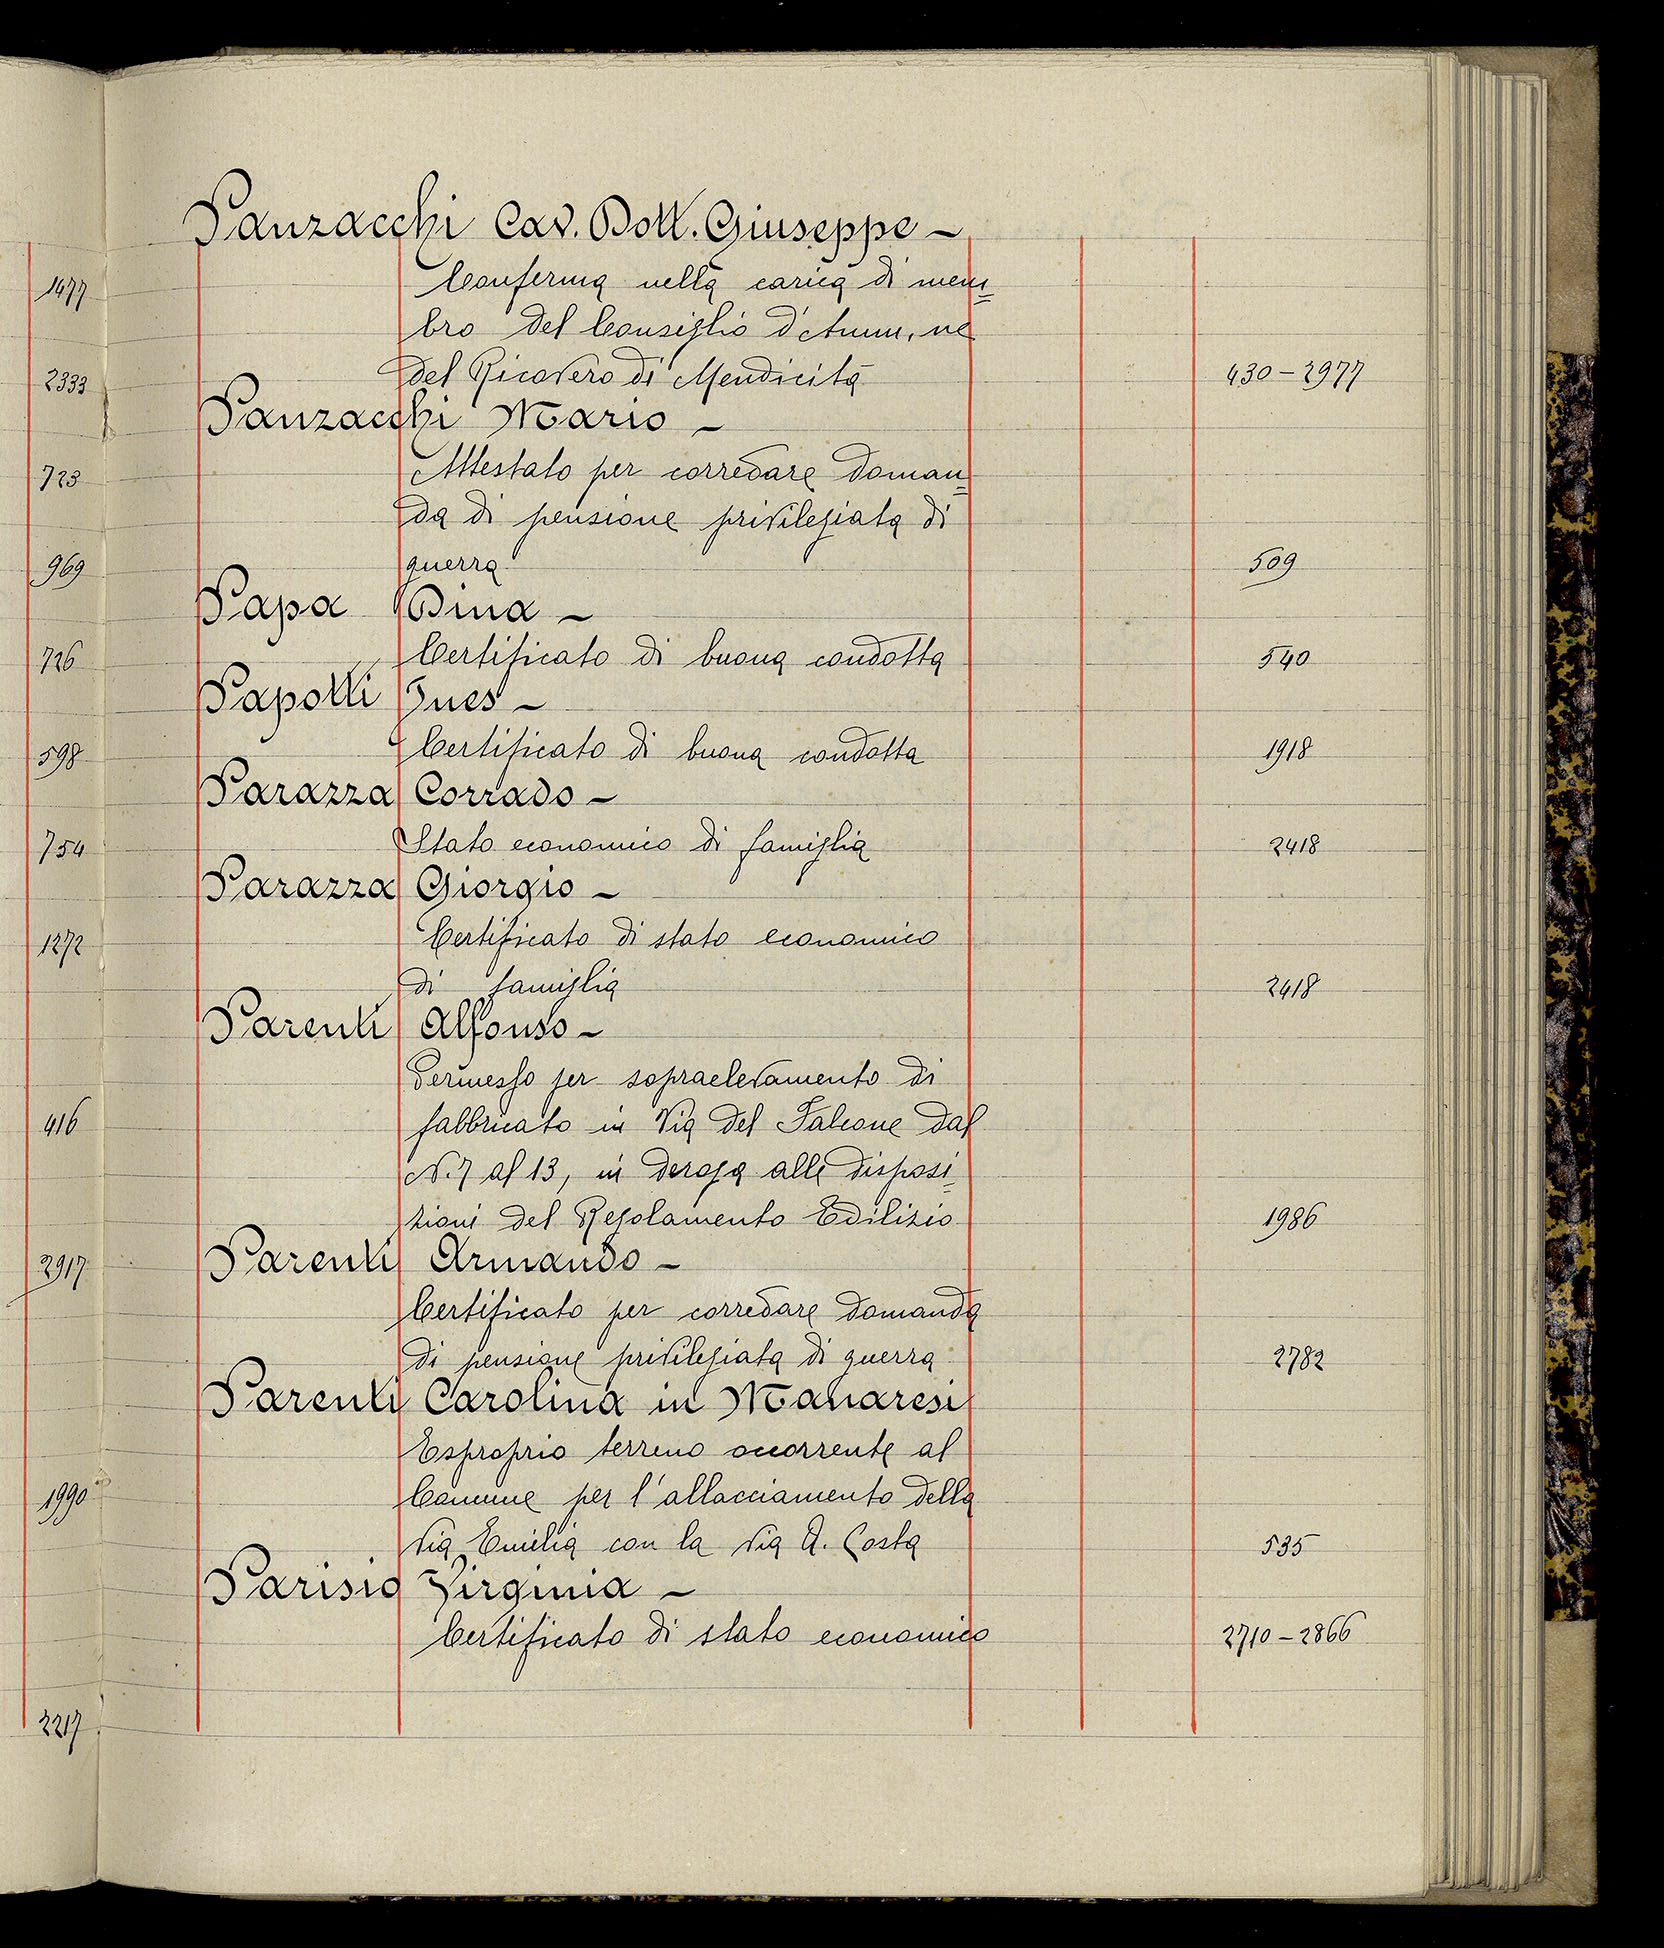 1477
2333
723
969
726
598
754
1272
416
2917
1990
2217
Panzacchi Cav. Dott. Giuseppe –
Conferma nella carica di mem=
bro del Consiglio d'Amm.ne
del Ricovero di Mendicità 430 – 2977
Panzacchi Mario –
Attestato per corredare doman=
da di pensione privilegiata di
guerra 509
Papa Dina –
Certificato di buona condotta 540
Papotti Ines –
Certificato di buona condotta 1918
Parazza Corrado –
Stato economico di famiglia 2418
Parazza Giorgio –
Certificato di stato economico
di famiglia 2418
Parenti Alfonso –
Permesso per sopraelevamento di
fabbricato in Via del Falcone dal
N. 7 al 13, in deroga alle disposi=
zioni del Regolamento Edilizio 1986
Parenti Armando –
Certificato per corredare domanda
di pensione privilegiata di guerra 2782
Parenti Carolina in Manaresi
Esproprio terreno occorrente al
Comune per l'allacciamento della
via Emilia con la via A. Costa 535
Parisio Virginia –
Certificato di stato economico 2710 – 2866